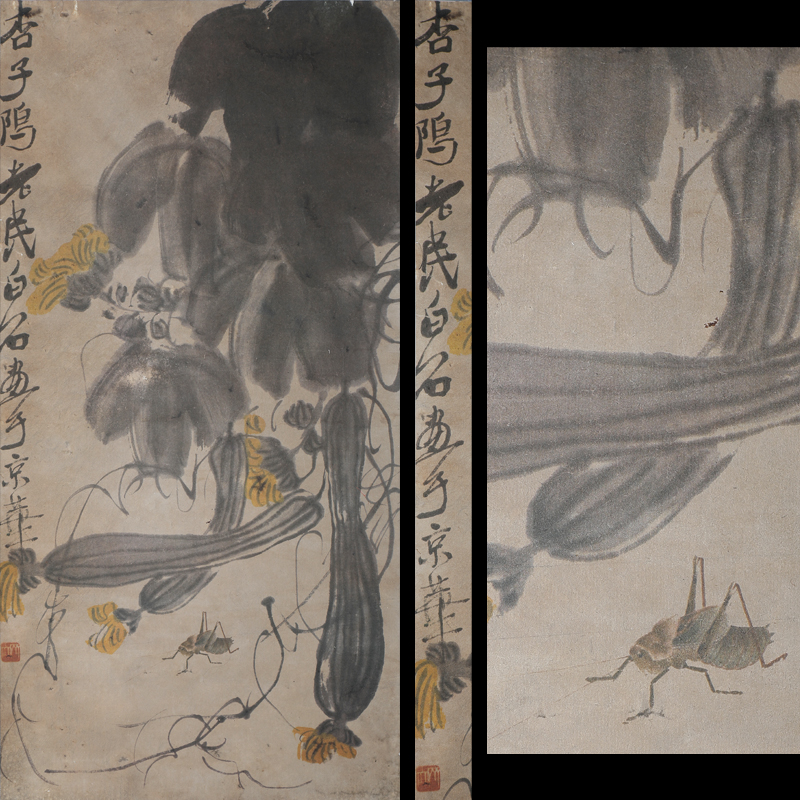 杏子隝老民白石画于京華
杏子隝老民白石画于京華